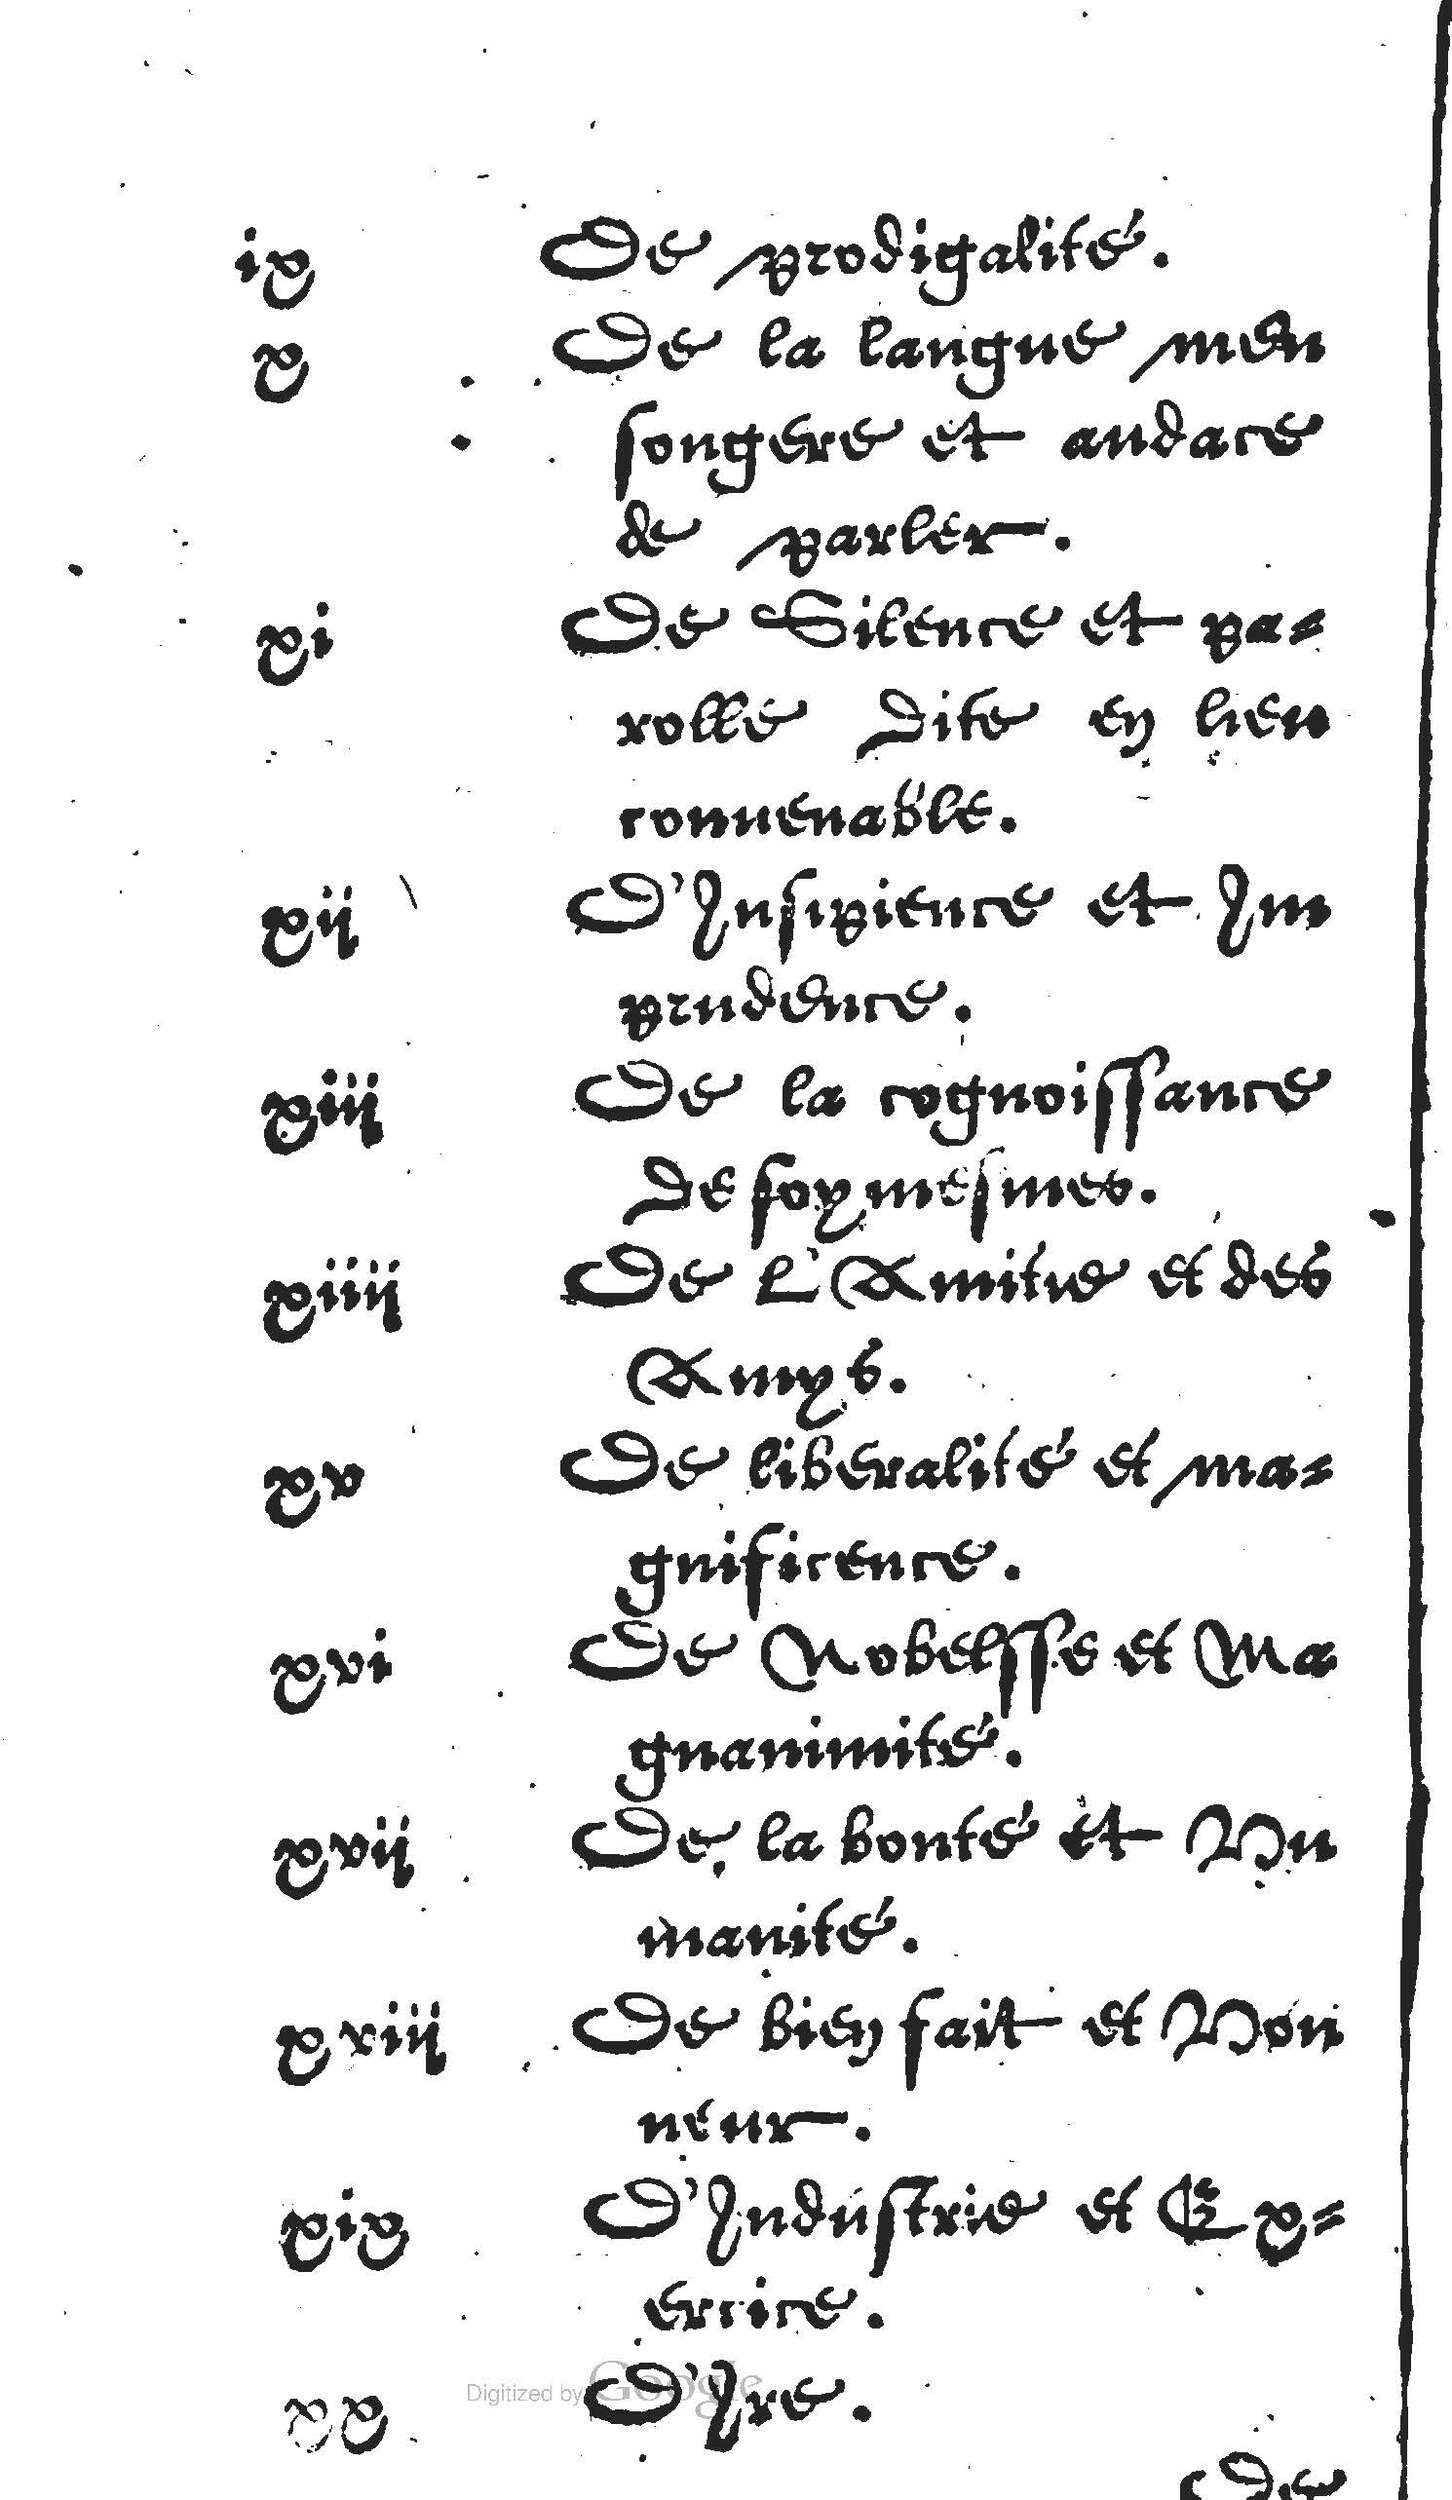 ix De prodigalité.
x De la langue men
songere et audace
de parler.
xi De Silence et pa=
rolle dite en lieu
conuenable.
xii D'Insipience et Im
prudence.
xiii De la cognoissance
de soy mesmes.
xiiii De L'Amitie et des
Amys.
xv De liberalité et ma=
gnificence.
xvi De Nobelsse et Ma
gnanimité.
xvii De la bonté et Hu
manité.
xviii De bien fait et Hon
neur.
xix D'Industrie et Ex=
ercice.
xx D'Ire.
De
Digitized by Google